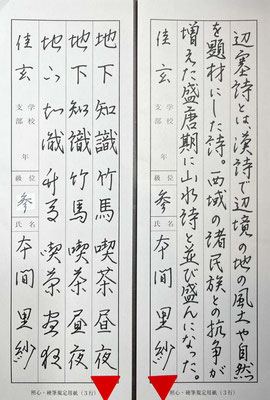 辺塞詩とは漢詩で辺境の地の風土や自然
を題材にした詩。西域の諸民族との抗争が
増えた盛唐期に山水詩と並び盛んになった。
佳玄 支部 学校 年 級位 参 氏名 本間里紗
規定用紙(3行)
地下知識竹馬喫茶昼夜
地下知識竹馬喫茶昼夜
地下知識竹馬喫茶昼夜
佳玄 支部 学校 年 級位 参 氏名 本間里紗
規定用紙(3行)